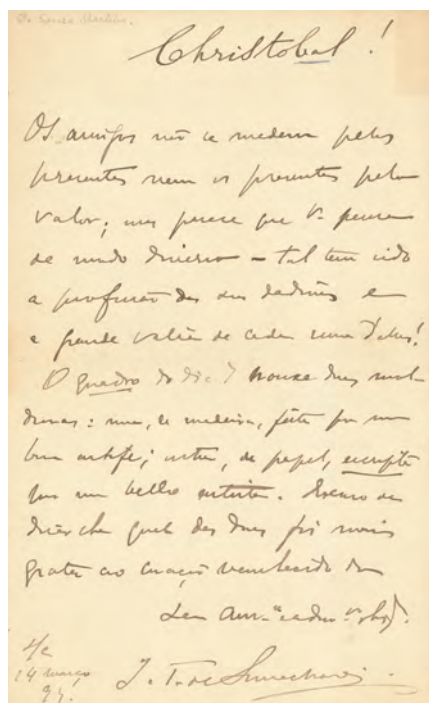 Dr. Souza Martins.
Christobal!
Os amigos não se medem pelos
presentes nem os presentes pelo
valor; mas parece que V. pensa
de modo diverso – tal tem sido
a profusão das suas dadivas e
a grande valia de cada uma d'elas!
O quadro do dia 7 trouxe duas mol-
duras: uma, de madeira, feita por um
bom artifice; outra, de papel, escripta
por um bello artista. Escuso de
dizer-lhe qual das duas foi mais
grata ao coração reconhecido do
Seu am.º
S/c
14 março
94.
J. T. de Souza Martins.